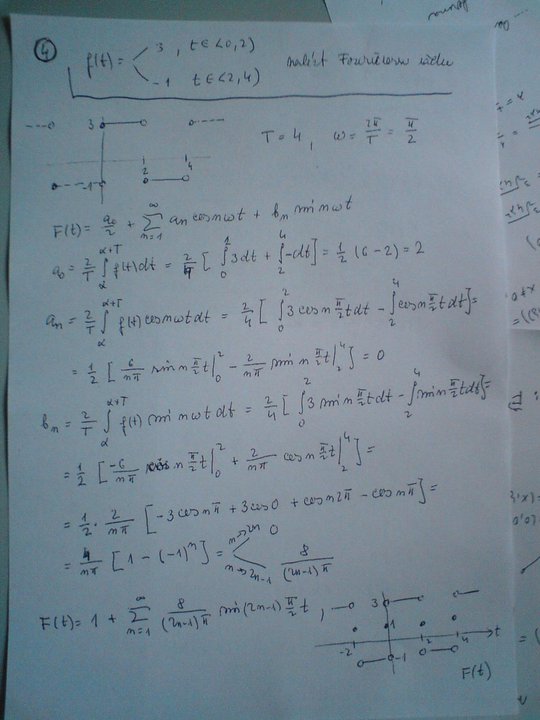 4
f(t) = < 3 , t ∈ <0, 2)
-1 t ∈ <2, 4)
nalézt Fourierovu řadu
3
2 4
-1
T = 4 , ω = 2π/T = π/2
F(t) = a0/2 + ∑_{n=1}^{∞} an cos nωt + bn sin nωt
a0 = 2/T ∫_{α}^{α+T} f(t)dt = 2/4 [ ∫_0^2 3dt + ∫_2^4 -dt ] = 1/2 (6-2) = 2
an = 2/T ∫_{α}^{α+T} f(t) cos nωt dt = 2/4 [ ∫_0^2 3 cos n π/2 t dt - ∫_2^4 cos n π/2 t dt ] =
= 1/2 [ 6/nπ sin n π/2 t |_0^2 - 2/nπ sin n π/2 t |_2^4 ] = 0
bn = 2/T ∫_{α}^{α+T} f(t) sin nωt dt = 2/4 [ ∫_0^2 3 sin n π/2 t dt - ∫_2^4 sin n π/2 t dt ] =
= 1/2 [ -6/nπ cos n π/2 t |_0^2 + 2/nπ cos n π/2 t |_2^4 ] =
= 1/2 · 2/nπ [ -3 cos nπ + 3 cos 0 + cos n2π - cos nπ ] =
= 4/nπ [ 1 - (-1)^n ] = < n → 2n 0
n → 2n-1 8/(2n-1)π
F(t) = 1 + ∑_{n=1}^{∞} 8/(2n-1)π sin (2n-1) π/2 t ,
3
1
-2 2 4 t
-1
F(t)